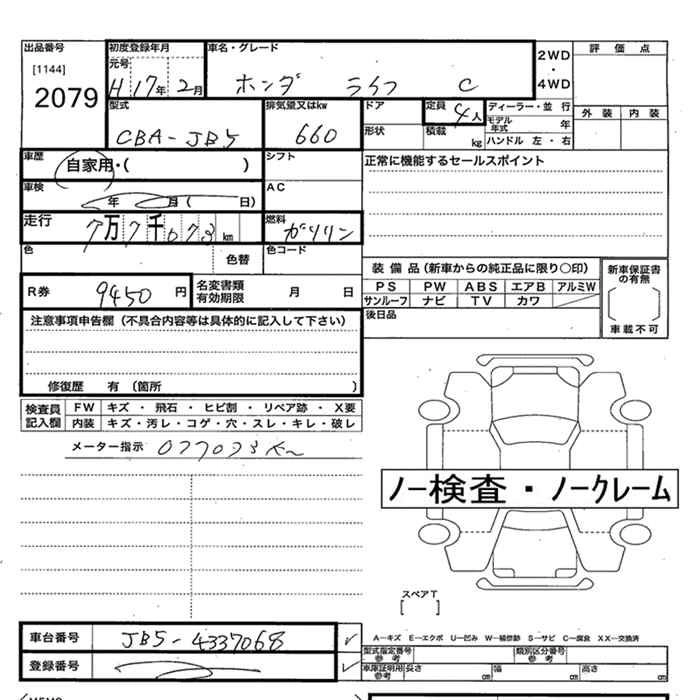 出品番号
[1144]
2079
初度登録年月
元号
H 17年 2月
車名・グレード
ホンダ ライフ C
2WD
・
4WD
評価点
外装 内装
型式
CBA-JB5
排気量又はkw
660
ドア
形状
定員 4人
積載 kg
ディーラー・並行
モデル年式 年
ハンドル 左・右
車歴
自家用・( )
シフト
正常に機能するセールスポイント
車検
年 月( 日)
AC
走行
7万7千073km
燃料
ガソリン
色
色替
色コード
R券 9450円
名変書類
有効期限 月 日
装備品(新車からの純正品に限り〇印)
PS PW ABS エアB アルミW
サンルーフ ナビ TV カワ
後日品
新車保証書
の有無
車載不可
注意事項申告欄(不具合内容等は具体的に記入して下さい)
修復歴 有 (箇所 )
検査員
記入欄
FW キズ ・ 飛石 ・ ヒビ割 ・ リペア跡 ・ X要
内装 キズ・汚レ・コゲ・穴・スレ・キレ・破レ
メーター指示 077073K
ノー検査・ノークレーム
スペアT
[ ]
車台番号 JB5-4337068
登録番号
A―キズ E―エクボ U―凹み W―補修跡 S―サビ C―腐食 XX―交換済
型式指定番号
参考
類別区分番号
参考
車庫証明用
参考
長さ cm 幅 cm 高さ cm
MEMO